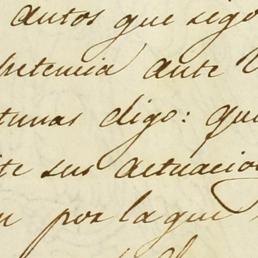 autos que sigo
petencia ante
tunas digo: que
te sus actuacio
por la que